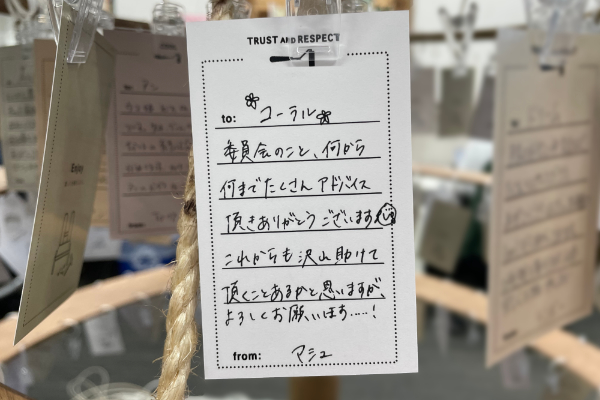 TRUST AND RESPECT
to: コーラル
委員会のこと、何から
何までたくさんアドバイス
頂きありがとうございます
これからも沢山助けて
頂くことあるかと思いますが、
よろしくお願いします.....!
from: アシュ
Enjoy